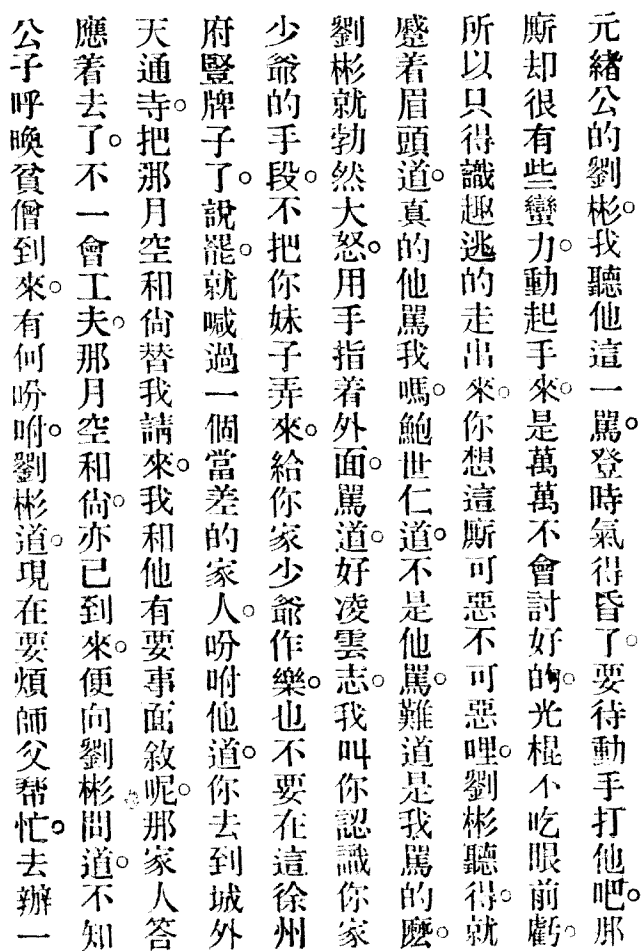 元緒公的劉彬。我聽他這一罵。登時氣得昏了。要待動手打他吧。那
廝却很有些蠻力。動起手來。是萬萬不會討好的。光棍不吃眼前虧。
所以只得識趣逃的走出來。你想這廝可惡不可惡哩。劉彬聽得。就
蹙着眉頭道。真的他罵我嗎。鮑世仁道。不是他罵。難道是我罵的麼。
劉彬就勃然大怒。用手指着外面。罵道。好凌雲志。我叫你認識你家
少爺的手段。不把你妹子弄來。給你家少爺作樂。也不要在這徐州
府豎牌子了。說罷。就喊過一個當差的家人。吩咐他道。你去到城外
天通寺。把那月空和尙替我請來。我和他有要事面敘呢。那家人答
應着去了。不一會工夫。那月空和尙。亦已到來。便向劉彬問道。不知
公子呼喚貧僧到來。有何吩咐。劉彬道。現在要煩師父帮忙。去辦一